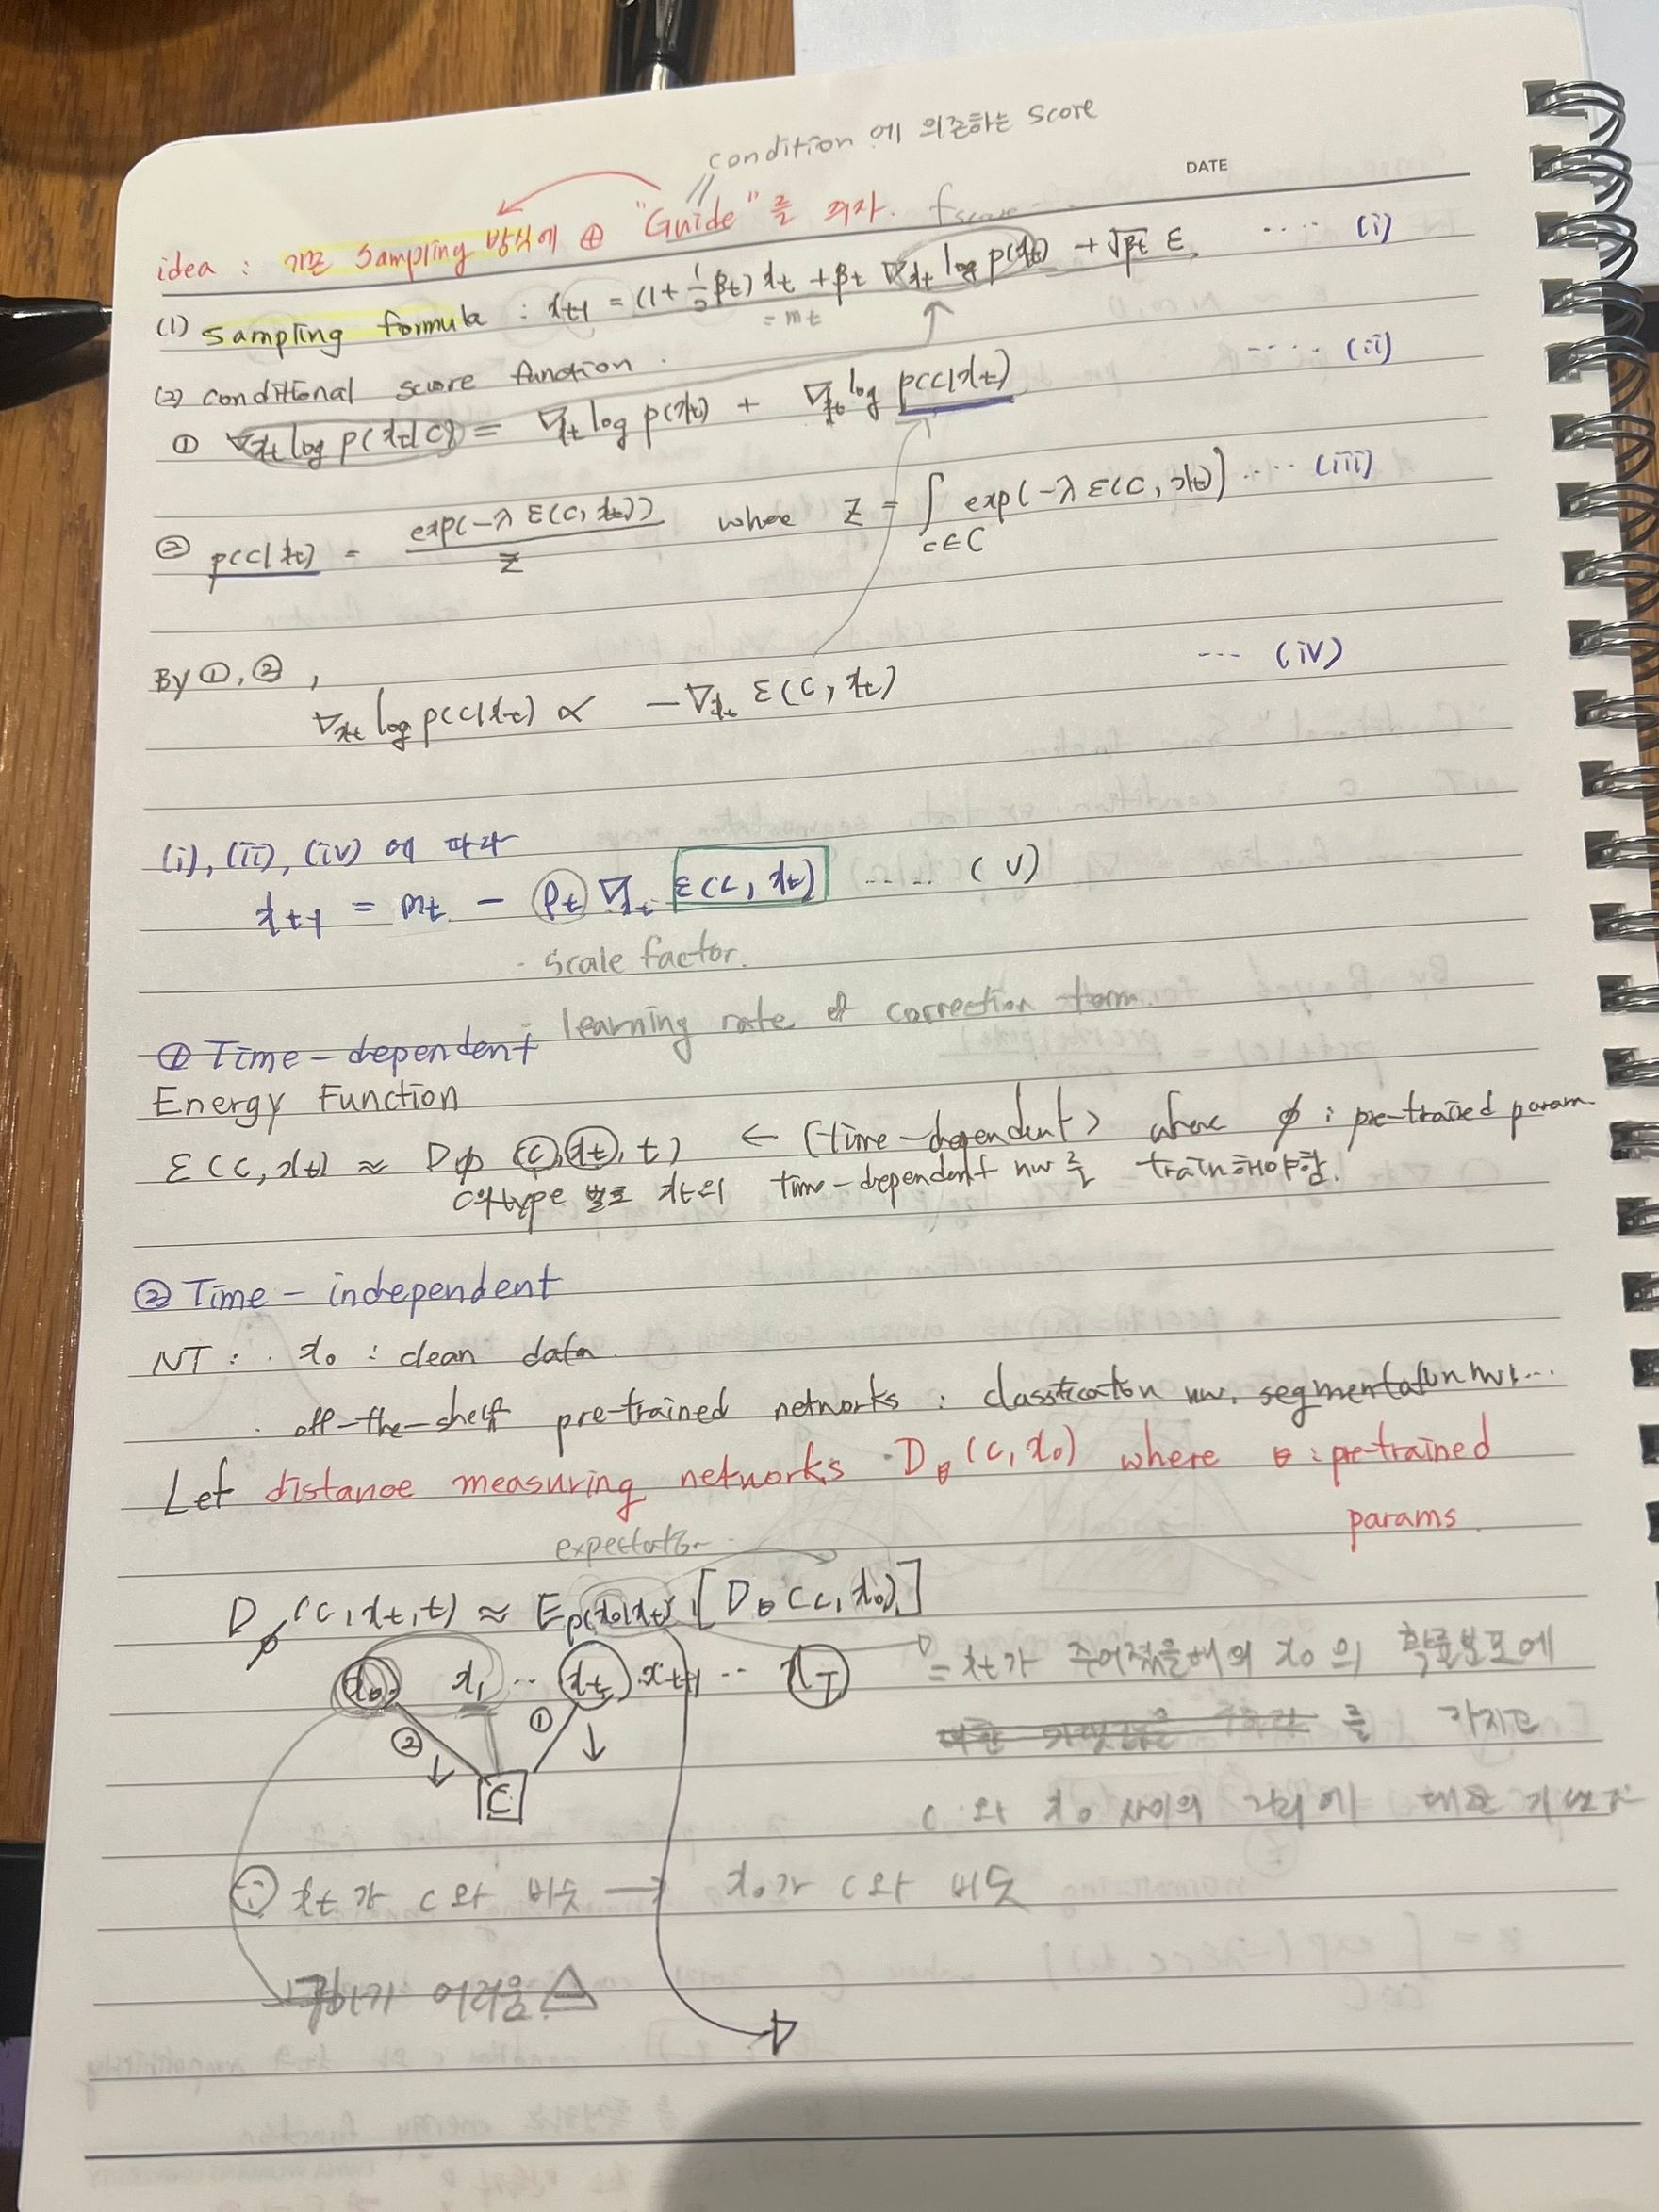 condition에 의존하는 score
DATE
idea : 기존 Sampling 방식에 ⊕ "Guide"를 하자.
(1) Sampling formula : x_{t-1} = (1 + 1/2 β_t) x_t + β_t ∇_{x_t} log p(x_t) + √β_t ε, ···· (i)
= m_t
(2) conditional score function.
① ∇_{x_t} log p(x_t|c) = ∇_{x_t} log p(x_t) + ∇_{x_t} log p(c|x_t) ···· (ii)
② p(c|x_t) = exp(-λ ε(c, x_t)) / Z where Z = ∫_{c∈C} exp(-λ ε(c, x_t)) ···· (iii)
By ①, ②,
∇_{x_t} log p(c|x_t) ∝ -∇_{x_t} ε(c, x_t) ··· (iv)
(i), (ii), (iv) 에 따라
x_{t-1} = m_t - ρ_t ∇_{x_t} ε(c, x_t) ····· (v)
- scale factor.
- learning rate of correction term.
① Time-dependent
Energy Function
ε(c, x_t) ≈ D_ϕ (c, x_t, t) ← (time-dependent) where ϕ : pre-trained param.
c의 type 별로 x_t의 time-dependent nw를 train해야함.
② Time-independent
NT : · x_0 : clean data
· off-the-shelf pre-trained networks : classification nw. segmentation nw...
Let distance measuring networks D_θ (c, x_0) where θ : pre-trained
params
expectation
D_ϕ (c, x_t, t) ≈ E_{p(x_0|x_t)} [D_θ (c, x_0)]
x_0 x_1 ·· x_t x_{t+1} ·· x_T
= x_t가 주어졌을때의 x_0의 확률분포에
② ① ↓ ↓ 를 가지고
C
c와 x_0 사이의 거리에 대한 기댓값
① x_t가 c와 비슷 → x_0가 c와 비슷
구하기 어려움 △